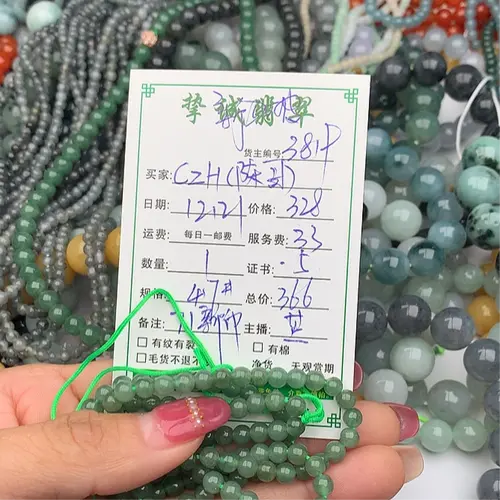 挚誠翡翠
货主编号 381中
买家: CZH(陈
日期: 12.21 价格: 328
运费: 每日一邮费 服务费: 33
数量: 1 证书: 5
规格: 47# 总价: 366
备注: 主播:
□有纹有裂 □有棉
□毛货不退不 净货 无观赏期